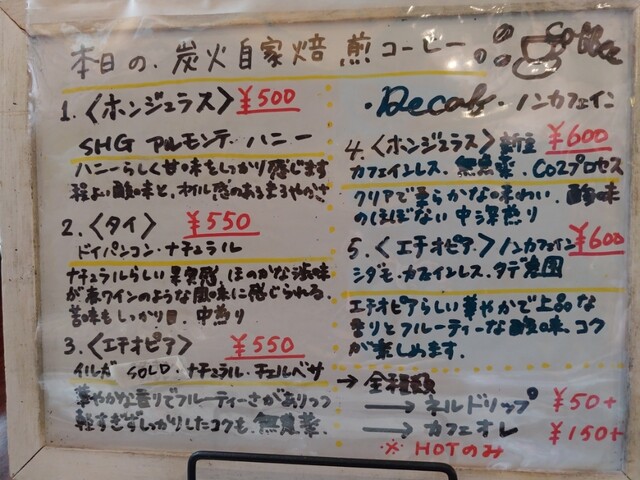 本日の、炭火自家焙煎コーヒー。
Coffee
1.〈ホンジュラス〉¥500
SHG アルモンテ・ハニー
ハニーらしく甘味もしっかり感じます
程よい酸味と、オイル感のあるまろやかさ
2.〈タイ〉¥550
ドイパンコン・ナチュラル
ナチュラルらしい果実感、ほのかな酸味
が赤ワインのような風味に感じられる、
苦味もしっかり目、中煎り
3.〈エチオピア〉¥550
イルガ SOLD・ナチュラル・チェルベサ
華やかな香りでフルーティーさがありつつ
軽すぎずしっかりしたコクも、無農薬、
・Decafe・ノンカフェイン
4.〈ホンジュラス〉¥600
カフェインレス、無農薬、CO2プロセス
クリアで柔らかな味わい、酸味
のほぼない中深煎り
5.〈エチオピア〉ノンカフェイン ¥600
シダモ・カフェインレス・タデ農園
エチオピアらしい華やかで上品な
香りとフルーティーな酸味、コク
が楽しめます、
→全種類
→ネルドリップ ¥50+
→カフェオレ ¥150+
※HOTのみ